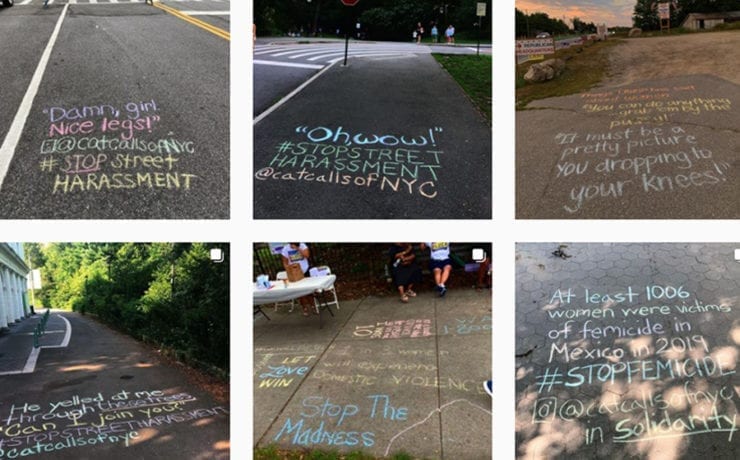 "Damn, girl.
Nice legs!"
@catcallsofNYC
#STOP street
HARASSMENT
"Oh wow!"
#STOPSTREET
HARASSMENT
@catcallsofNYC
REPUBLICAN
HEADQUARTERS
you can do anything
grab em by the
"It must be a
pretty picture
you dropping to
your knees!"
He yelled at me
through the trees
"Can I join you?"
#STOPSTREETHARASSMENT
@catcallsofnyc
LET
Love
WIN
women
will experience
DOMESTIC VIOLENCE
Stop The
Madness
At least 1006
women were victims
of femicide in
Mexico in 2019
#STOPFEMICIDE
@catcallsofnyc
in Solidarity